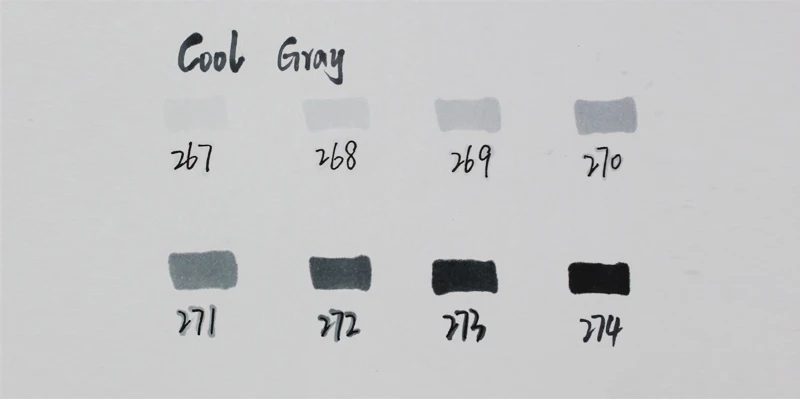 Cool Gray
267 268 269 270
271 272 273 274